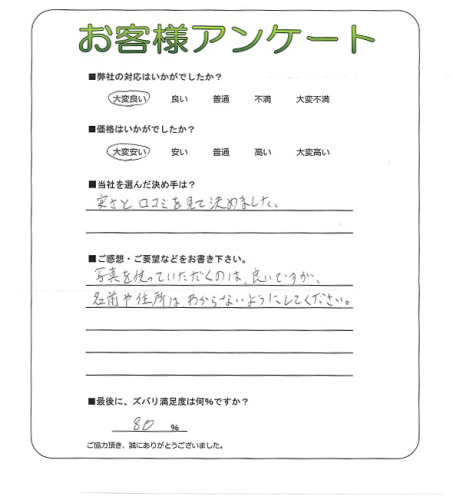 お客様アンケート
■弊社の対応はいかがでしたか？
大変良い 良い 普通 不満 大変不満
■価格はいかがでしたか？
大変安い 安い 普通 高い 大変高い
■当社を選んだ決め手は？
安さと口コミを見て決めました。
■ご感想・ご要望などをお書き下さい。
写真を使っていただくのは、良いですが、
名前や住所はわからないようにしてください。
■最後に、ズバリ満足度は何％ですか？
80 %
ご協力頂き、誠にありがとうございました。